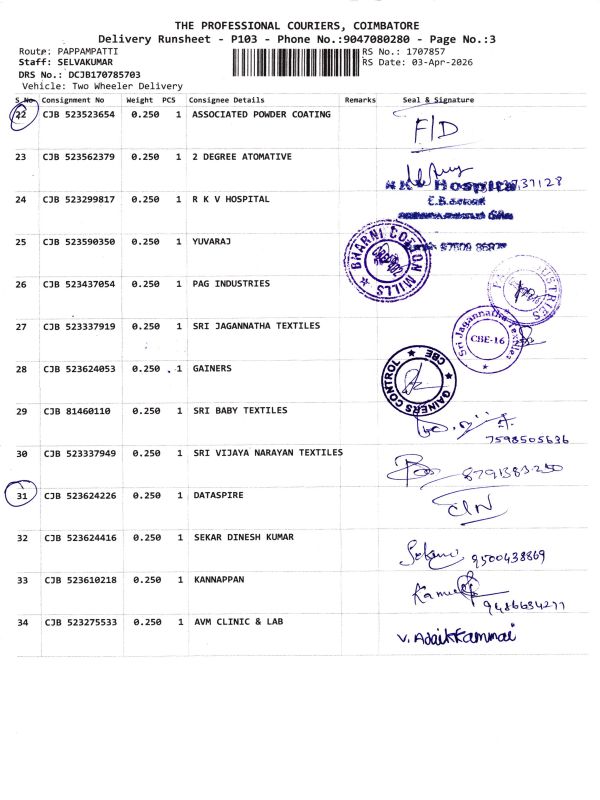 THE PROFESSIONAL COURIERS, COIMBATORE
Delivery Runsheet - P103 - Phone No.:9047080280 - Page No.:3
Route: PAPPAMPATTI
RS No.: 1707857
Staff: SELVAKUMAR
RS Date: 03-Apr-2026
DRS No.: DCJB170785703
Vehicle: Two Wheeler Delivery
S.No Consignment No Weight PCS Consignee Details Remarks Seal & Signature
22 CJB 523523654 0.250 1 ASSOCIATED POWDER COATING F/D
23 CJB 523562379 0.250 1 2 DEGREE ATOMATIVE
24 CJB 523299817 0.250 1 R K V HOSPITAL
Hospital
25 CJB 523590350 0.250 1 YUVARAJ
BHARNI COTTON MILLS
26 CJB 523437054 0.250 1 PAG INDUSTRIES
27 CJB 523337919 0.250 1 SRI JAGANNATHA TEXTILES
Sri Jagannatha Textiles
CBE-16
28 CJB 523624053 0.250 1 GAINERS
GAINERS CONTROL CBE
29 CJB 81460110 0.250 1 SRI BABY TEXTILES
7598505636
30 CJB 523337949 0.250 1 SRI VIJAYA NARAYAN TEXTILES
8791383250
31 CJB 523624226 0.250 1 DATASPIRE
CIN
32 CJB 523624416 0.250 1 SEKAR DINESH KUMAR
9500438869
33 CJB 523610218 0.250 1 KANNAPPAN
34 CJB 523275533 0.250 1 AVM CLINIC & LAB
V. Adaikkammai